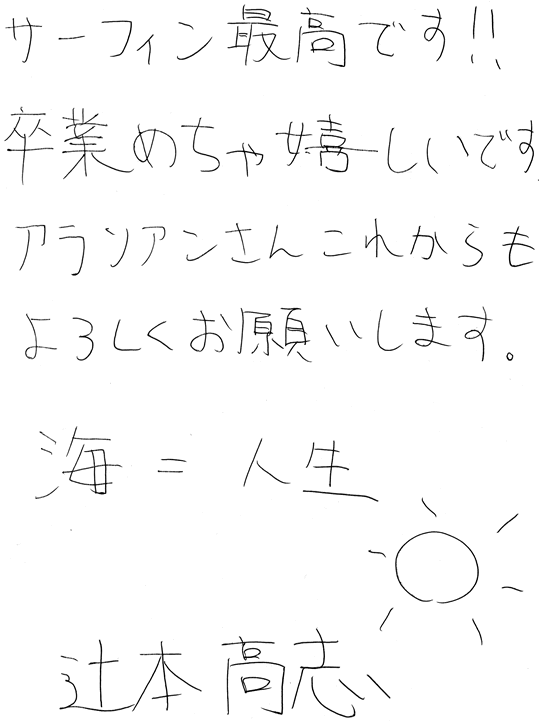 サーフィン最高です!!
卒業めちゃ嬉しいです
アランアンさんこれからも
よろしくお願いします。
海 = 人生
辻本高志